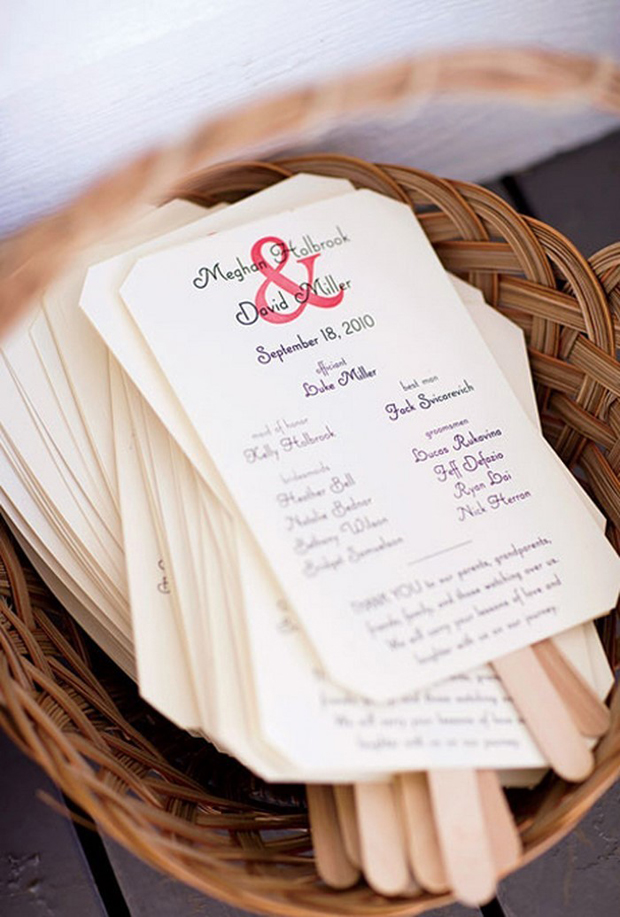 Meghan Holbrook
&
David Miller
September 18, 2010
officiant
Luke Miller
maid of honor
Kelly Holbrook
bridesmaids
Heather Bell
Natalie Bednar
Bethany Wilson
Bridget Samuelson
best man
Jack Svicarevich
groomsmen
Lucas Rukavina
Jeff Defazio
Ryan Lai
Nick Herron
THANK YOU to our parents, grandparents,
friends, family, and those watching over us.
We will carry your lessons of love and
laughter with us on our journey.
We will carry your lessons of love and
laughter with us on our journey.